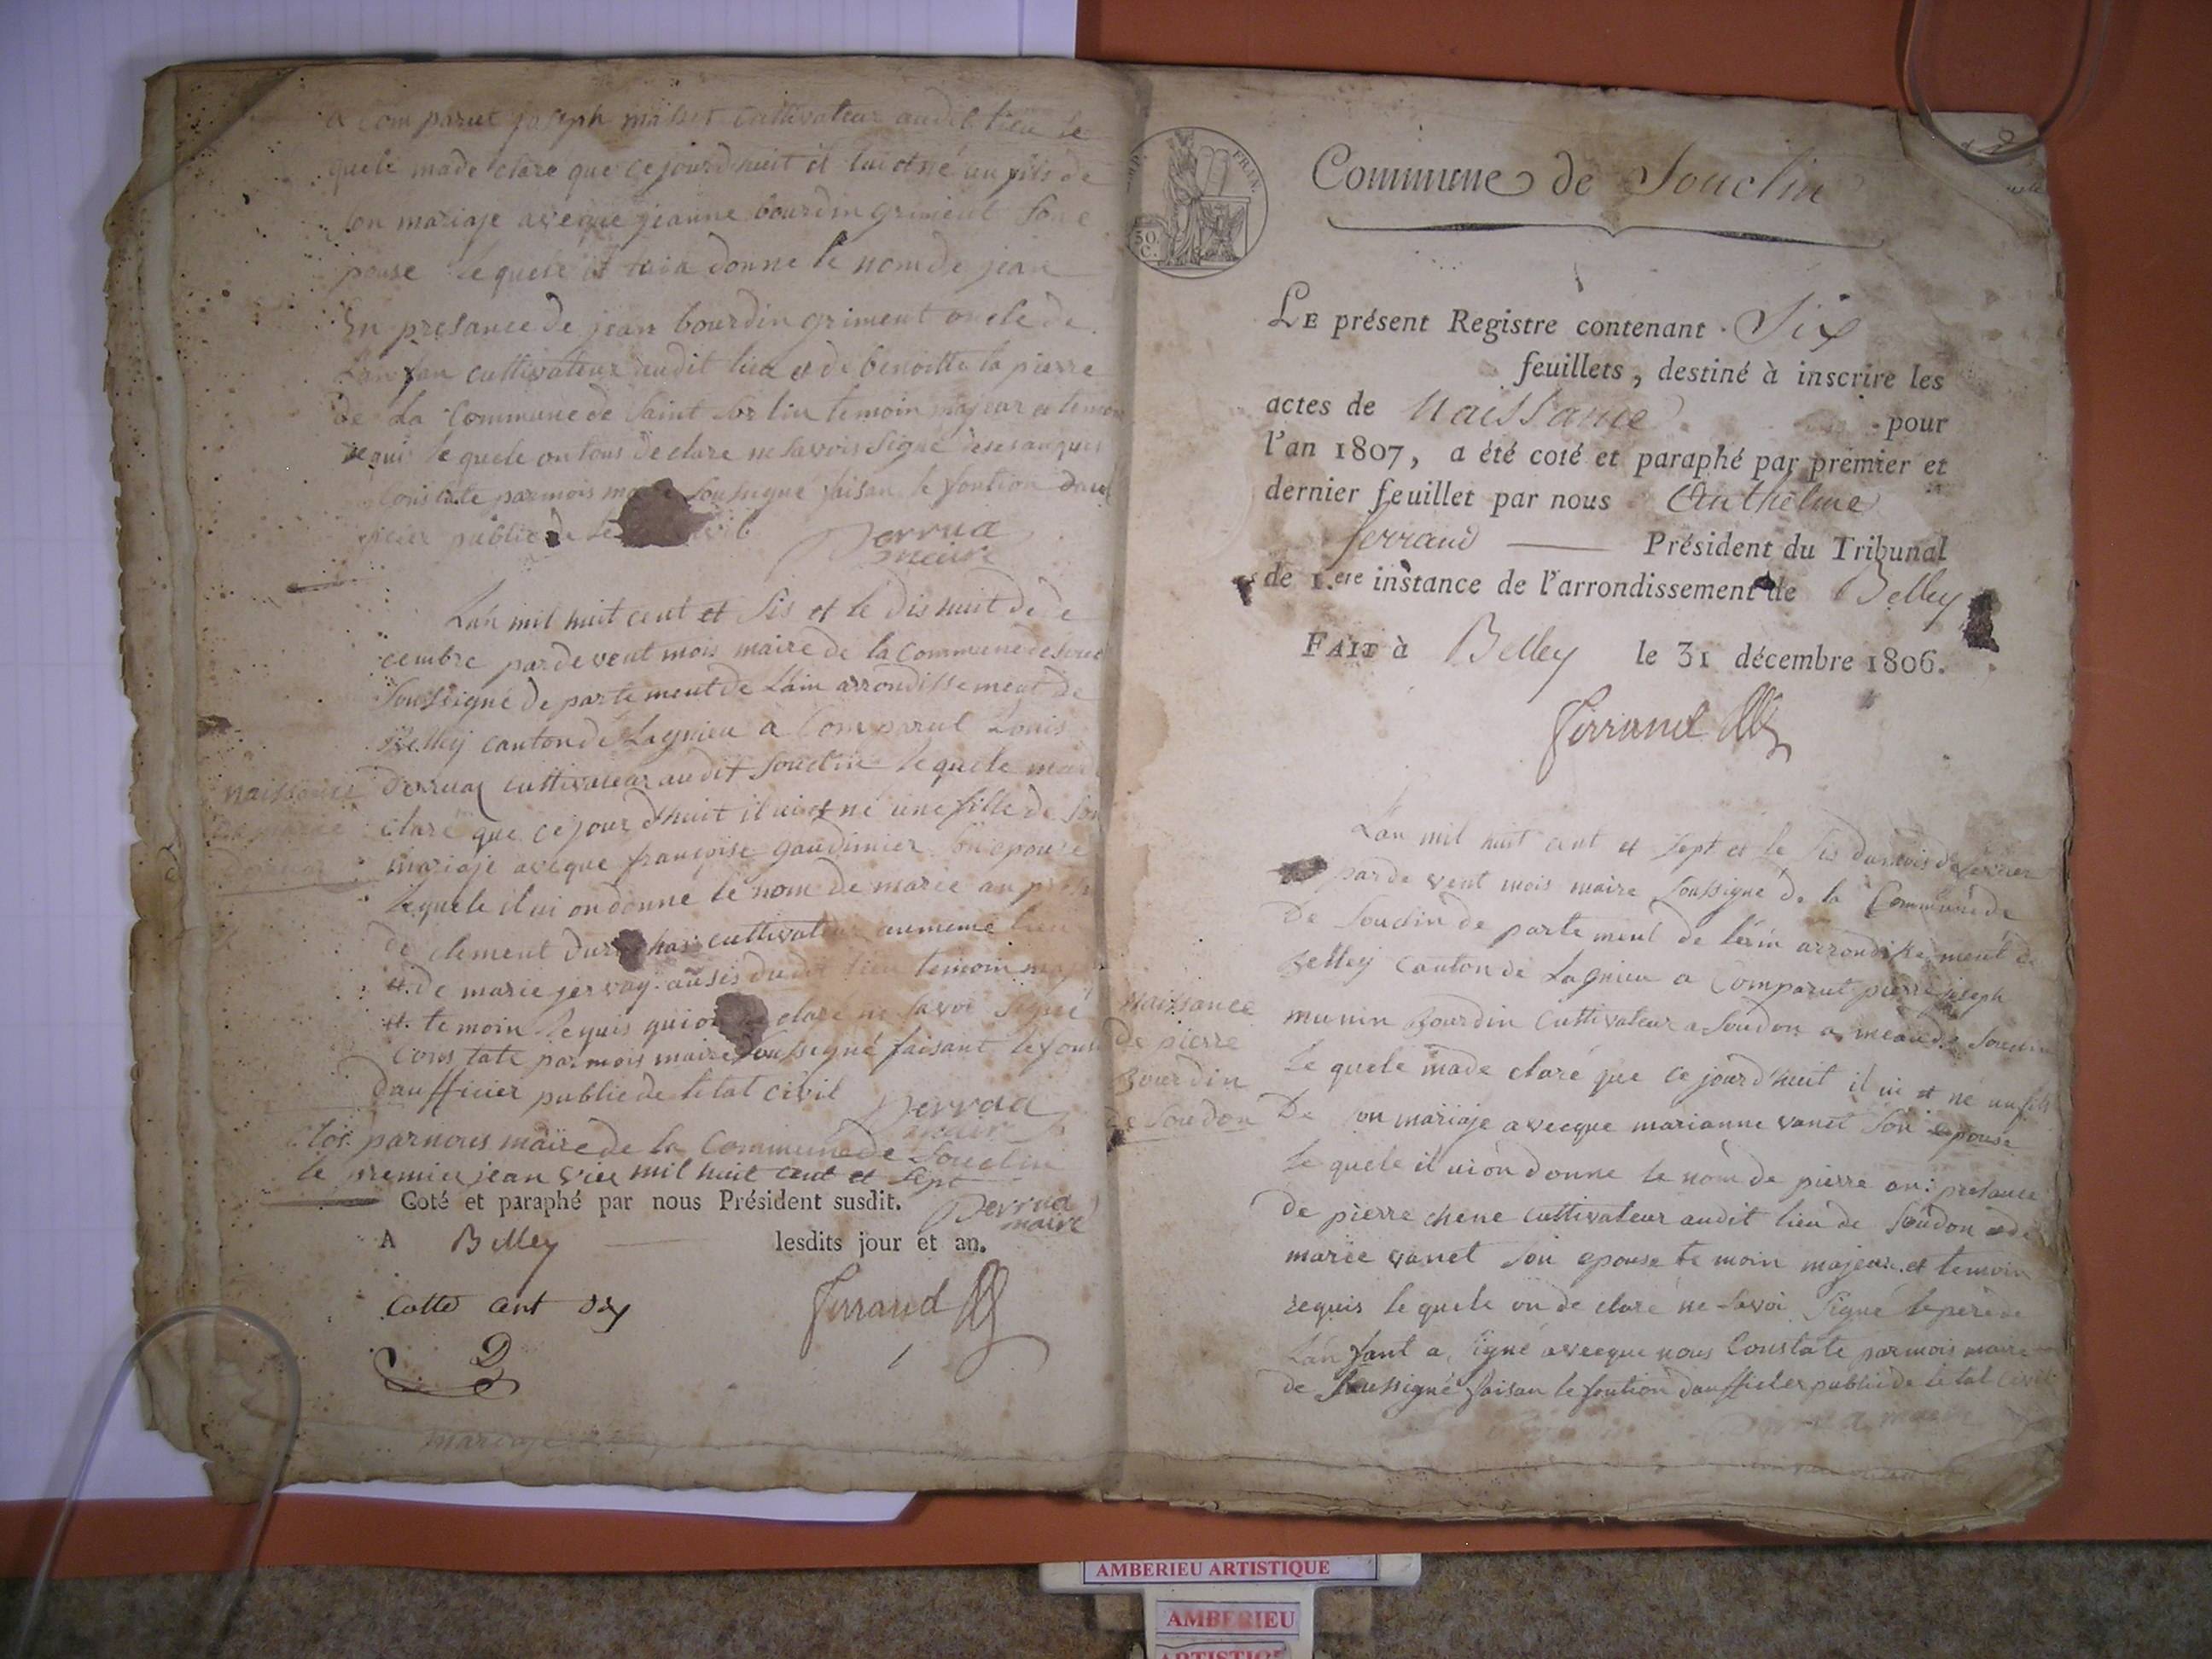 a Comparut joseph cultivateur audit lieu le
quele made clare que ce jourdhuit il lui et né un fils de
son mariaje aveque jeanne bourdin griment son e
pouse lequele il lui a donne le nom de jean
En presance de jean bourdin griment oncle de
Lan fan cultivateur dudit lieu et de benoitte la pierre
de La Commune de Saint Sorlin temoin majeur et temoin
requi le quele on tous declare ne savoir Signé
Constate parmois maire Soussigné faisan le fontion dau
ficier public de le civil
Derrua
maire
Lan mil huit cent et sis et le dis huit de de
cembre par devent mois maire de la Commune de Souc
Soussigné de partement de Lain arrondissement de
Belley canton de Lagnieu a Comparut Louis
Derrua cultivateur audit Souclin le quele made
clare que ce jour d'huit il ui et né une fille de son
mariaje aveque françoise gaudimier son epouse
lequele il ui on donne le nom de marie an pres
de clement cultivateur au meme lieu
et de marie jervay ausis dudit lieu temoin maj
et temoin requis qui on de clare ne savoi Signé
Cons tate parmois maire Soussigné faisant le fonti
daufficier public de letat civil
Derrua
maire
naissance
de marie
Derrua
Clos par nous maire de la Commune de Souclin
le premier jean vier mil huit cent et sept
Derrua
maire
Coté et paraphé par nous Président susdit.
A Belley lesdits jour et an.
Cotte cent dix
Ferrand
mariaje
TIMP. FRAN.
50.
C.
Commune de Souclin
LE présent Registre contenant Six
feuillets, destiné à inscrire les
actes de Naissance pour
l'an 1807, a été coté et paraphé par premier et
dernier feuillet par nous Anthelme
ferrand Président du Tribunal
de 1.ere instance de l'arrondissement de Belley
FAIT à Belley le 31 décembre 1806.
Ferrand
Lan mil huit cent et sept et le sis du mois de fevrier
par de vent mois maire Soussigné de la Commune de
De Souclin de parte ment de lain arrondisse ment de
Belley Canton de Lagnieu a Comparut pierre joseph
munin Bourdin Cultivateur a Soudon a meau de Souclin
le quele made claré que ce jourd'huit il ui et né un fils
De son mariaje avecque marianne vanet son epouse
le quele il ui on donne le nom de pierre an presance
de pierre chene cultivateur audit lieu de Soudon et de
marie vanet son epouse te moin majeur et temoin
requis le quele on de clare ne savoi Signé le pere de
Lan fant a signé avecque nous Constate parmois maire
de Soussigné faisan le fontion daufficier public de le tat civil
naissance
de pierre
Bourdin
de Soudon
AMBERIEU ARTISTIQUE
AMBERIEU
ARTISTIQUE